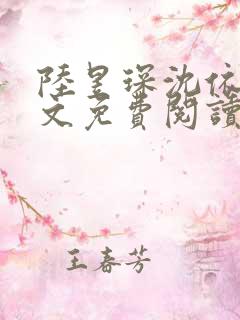 陸昱琛沈依
文免費閱讀
王春芳